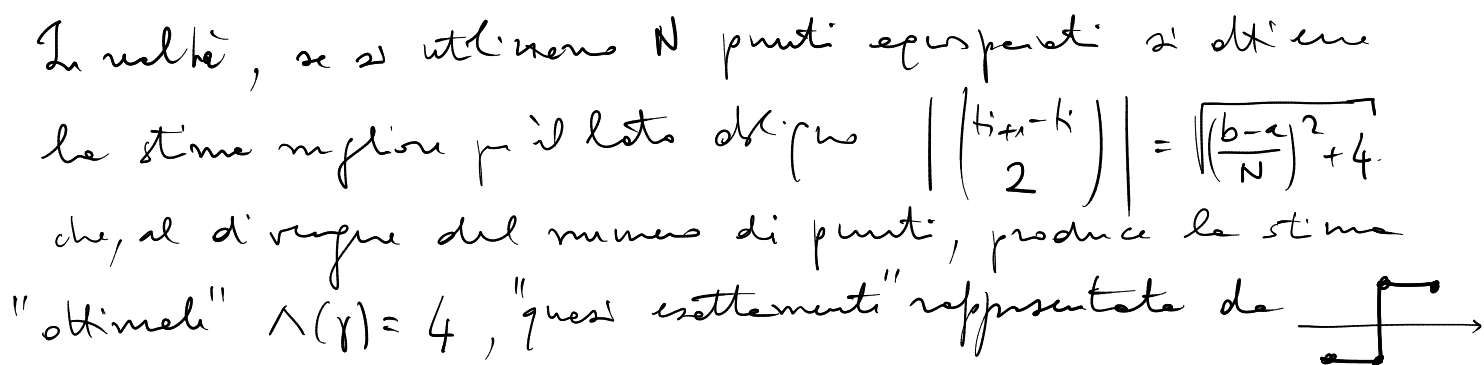 In realtà, se si utilizzano N punti equispaziati si ottiene
la stima migliore per il lato obliquo |(t_{i+1}-t_i \\ 2)| = \sqrt{((b-a)/N)^2 + 4}
che, al divergere del numero di punti, produce la stima
"ottimale" Λ(γ) = 4, "quasi esattamente" rappresentata da